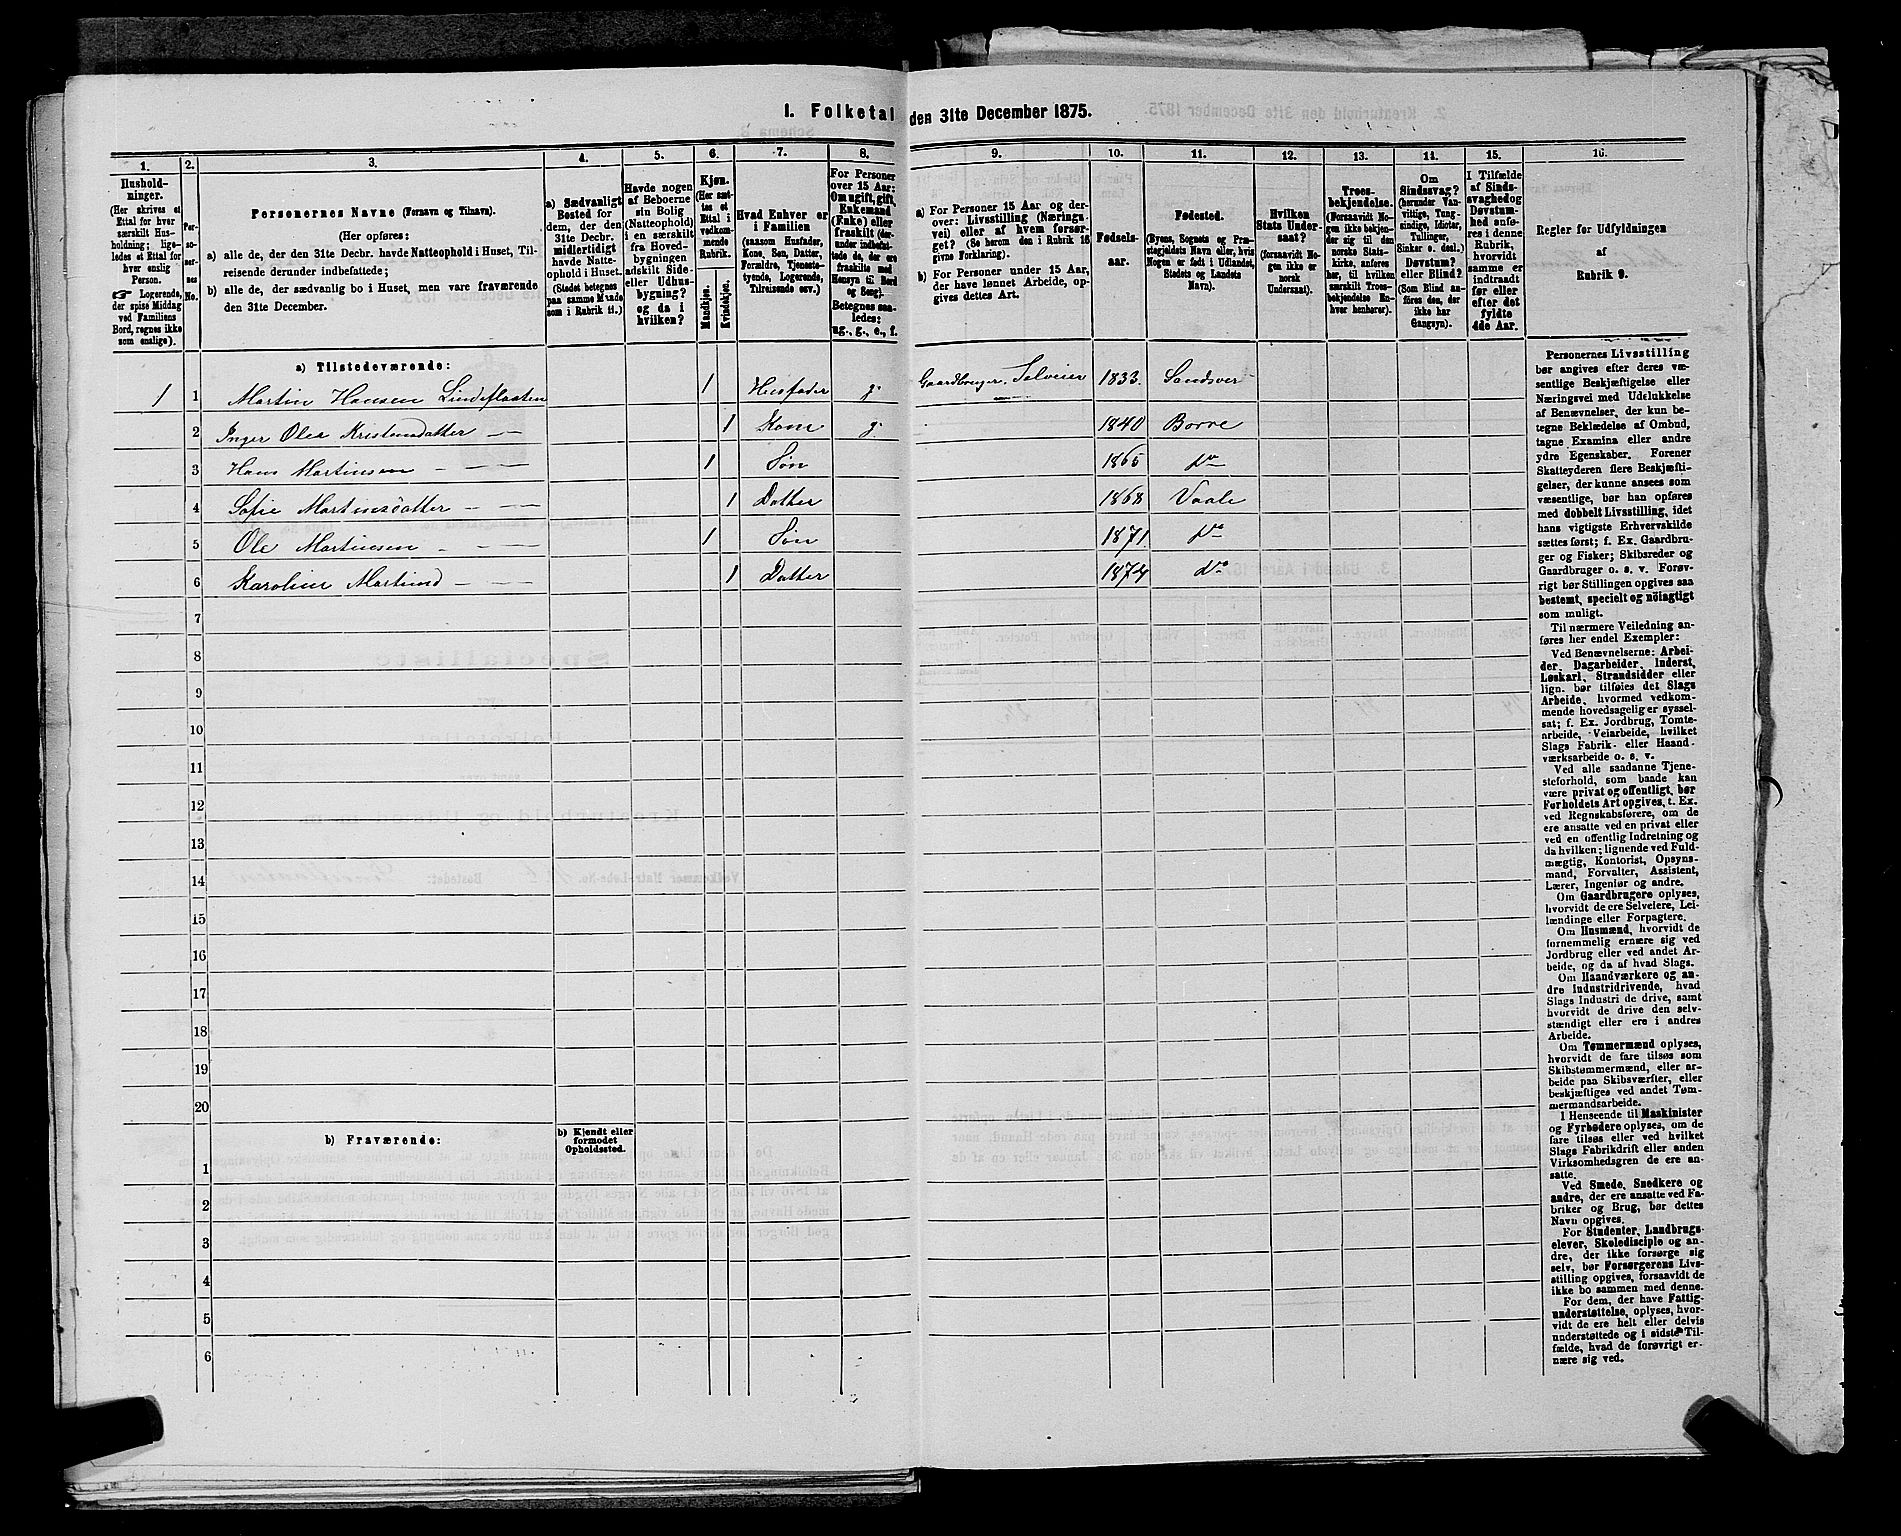 1. Folketal den 31te December 1875.
1. 2. 3. 4. 5. 6. 7. 8. 9. 10. 11. 12. 13. 14. 15. 16.
Hushold-
ninger.
(Her skrives et
Ettal for hver
særskilt Hus-
holdning; lige-
ledes et Ettal for
hver enslig
Person.
☞ Logerende,
der spise Middag
ved Familiens
Bord, regnes ikke
som enslige).
Per-
so-
ner-
nes
No.
Personernes Navne (Fornavn og Tilnavn).
(Her opføres:
a) alle de, der den 31te Decbr. havde Natteophold i Huset, Til-
reisende derunder indbefattede;
b) alle de, der sædvanlig bo i Huset, men vare fraværende
den 31te December.
a) Sædvanligt
Bosted for
dem, der den
31te Decbr.
midlertidigt
havde Natte-
ophold i Huset.
(Stedet betegnes
paa samme Maade
som i Rubrik 11.)
Havde nogen
af Beboerne
sin Bolig
(Natteophold)
i en særskilt
fra Hoved-
bygningen
adskilt Side-
eller Udhus-
bygning?
og da i
hvilken?
Kjøn.
(Her sæt-
tes et
Ettal i
vedkom-
mende
Rubrik.
Mandkjøn.
Kvindekjøn.
Hvad Enhver er
i Familien
(saasom Husfader,
Kone, Søn, Datter,
Forældre, Tjeneste-
tyende, Logerende,
Tilreisende osv.)
For Personer
over 15 Aar:
Om ugift, gift,
Enkemand
(Enke) eller
fraskilt (der-
under indbefat-
tede de, der ere
fraskilte med
Hensyn til Bord
og Seng).
Betegnes saa-
ledes:
ug., g., e., f.
a) For Personer 15 Aar og der-
over: Livsstilling (Nærings-
vei) eller af hvem forsør-
get? (Se herom den i Rubrik 16
givne Forklaring).
b) For Personer under 15 Aar,
der have lønnet Arbeide, op-
gives dettes Art.
Fødsels-
aar.
Fødested.
(Byens, Sognets og Præ-
stegjeldets Navn eller, hvis
Nogen er født i Udlandet,
Stedets og Landets
Navn).
Hvilken
Stats Under-
saat?
(forsaavidt No-
gen ikke er
norsk
Undersaat).
Troes-
bekjendelse.
(Forsaavidt No-
gen ikke bekjen-
der sig til den
norske Stats-
kirke, anføres
her, til hvilken
særskilt Troes-
bekjendelse En-
hver henhører).
Om
Sindssvag?
(herunder Van-
vittige, Tung-
sindige, Idioter,
Tullinger,
Sinker o. desl.).
Døvstum?
eller Blind?
(Som Blind an-
føres den, der
ikke har
Gangsyn).
I Tilfælde
af Sinds-
svaghed og
Døvstum-
hed anfø-
res i denne
Rubrik,
hvorvidt
samme er
indtraadt
før eller
efter det
fyldte
4de Aar.
Regler for Udfyldningen
af
Rubrik 9.
a) Tilstedeværende:
1 1 Martin Hansen Lindeflaaten 1 Husfader g. Gaardbruger. Selveier 1833. Sandsver
2 Inger Olea Kristensdatter — — 1 Kone g. 1840 Borre
3 Hans Martinsen — — 1 Søn 1865 do
4 Sofie Martinsdatter — — 1 Datter 1868 Vaale
5 Ole Martinsen — — 1 Søn 1871. do
6 Karoline Martinsd — — 1 Datter 1874 do
7
8
9
10
11
12
13
14
15
16
17
18
19
20
b) Fraværende:
b) Kjendt eller
formodet
Opholdssted.
1
2
3
4
5
6
Personernes Livsstilling
bør angives efter deres væ-
sentlige Beskjæftigelse eller
Næringsvei med Udelukkelse
af Benævnelser, der kun be-
tegne Beklædelse af Ombud,
tagne Examina eller andre
ydre Egenskaber. Forener
Skatteyderen flere Beskjæfti-
gelser, der kunne ansees som
væsentlige, bør han opføres
med dobbelt Livsstilling, idet
hans vigtigste Erhvervskilde
sættes først; f. Ex. Gaardbru-
ger og Fisker; Skibsreder og
Gaardbruger o. s. v. Forøv-
rigt bør Stillingen opgives saa
bestemt, specielt og nöiagtigt
som muligt.
Til nærmere Veiledning an-
føres her endel Exempler:
Ved Benævnelserne: Arbei-
der, Dagarbeider, Inderst,
Løskarl, Strandsidder eller
lign. bør tilføies det Slags
Arbeide, hvormed vedkom-
mende hovedsagelig er syssel-
sat; f. Ex. Jordbrug, Tomte-
arbeide, Veiarbeide, hvilket
Slags Fabrik- eller Haand-
værksarbeide o. s. v.
Ved alle saadanne Tjene-
steforhold, som baade kan
være privat og offentligt, bør
Forholdets Art opgives, t. Ex.
ved Regnskabsførere, om de
ere ansatte ved en privat eller
ved en offentlig Indretning og
da hvilken; lignende ved Fuld-
mægtig, Kontorist, Opsyns-
mand, Forvalter, Assistent,
Lærer, Ingeniør og andre.
Om Gaardbrugere oplyses,
hvorvidt de ere Selveiere, Lei-
lændinge eller Forpagtere.
Om Husmænd, hvorvidt de
fornemmelig ernære sig ved
Jordbrug eller ved andet Ar-
beide, og da af hvad Slags.
Om Haandværkere og an-
dre Industridrivende, hvad
Slags Industri de drive, samt
hvorvidt de drive den selv-
stændigt eller ere i andres
Arbeide.
Om Tømmermænd oplyses,
hvorvidt de fare tilsøs som
Skibstømmermænd, eller ar-
beide paa Skibsværfter, eller
beskjæftiges ved andet Tøm-
mermandsarbeide.
I Henseende til Maskinister
og Fyrbødere oplyses, om de
fare tilsøs eller ved hvilket
Slags Fabrikdrift eller anden
Virksomhedsgren de ere an-
satte.
Ved Smede, Snedkere og
andre, der ere ansatte ved Fa-
briker og Brug, bør dettes
Navn opgives.
For Studenter, Landbrugs-
elever, Skoledisciple og an-
dre, der ikke forsørge sig
selv, bør Forsørgerens Livs-
stilling opgives, forsaavidt de
ikke bo sammen med denne.
For dem, der have Fattig-
understøttelse, oplyses, hvor-
vidt de ere helt eller delvis
understøttede og i sidste Til-
fælde, hvad de forøvrigt er-
nære sig ved.